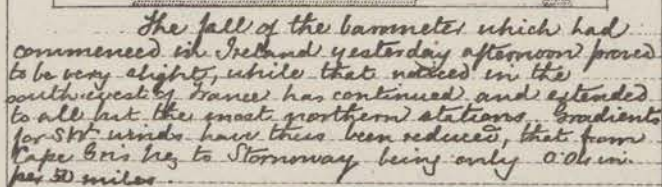 The fall of the barometer which had
commenced in Ireland yesterday afternoon proved
to be very slight, while that noticed in the
southwest of France has continued and extended
to all but the most northern stations. Gradients
for SWy winds have thus been reduced, that from
Cape Gris Nez to Stornoway being only in.
per 50 miles.